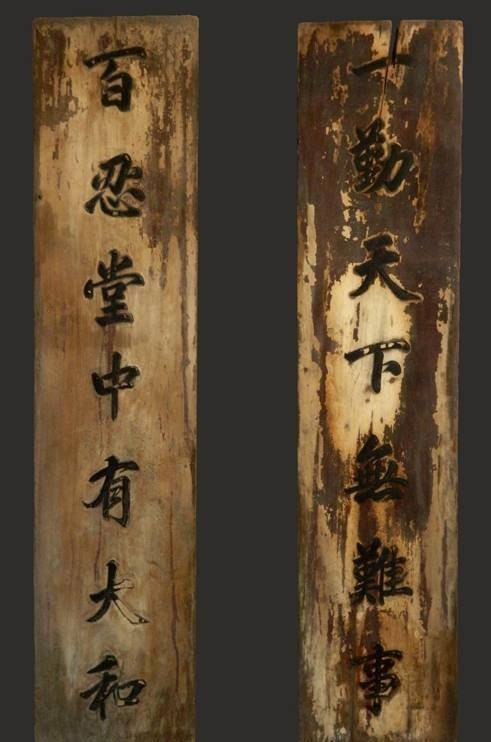 一勤天下無難事
百忍堂中有大和